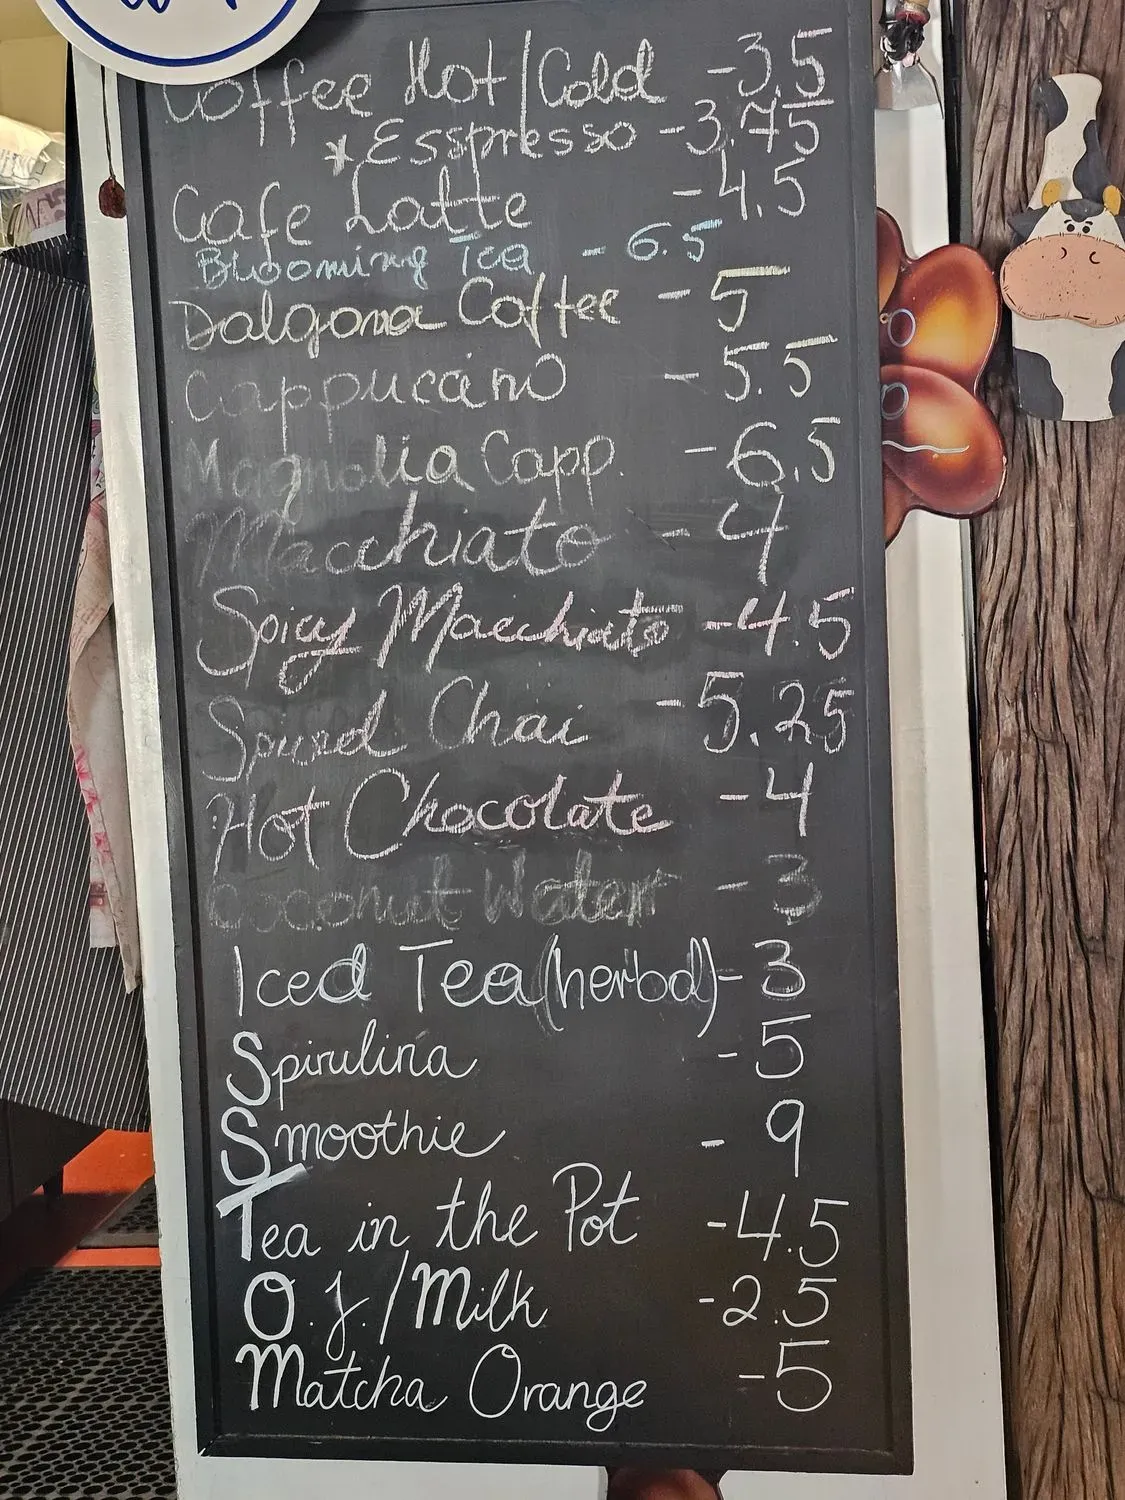 Coffee Hot/Cold -3.5
*Esspresso -3.75
Cafe Latte -4.5
Blooming Tea - 6.5
Dalgona Coffee - 5
Cappucino - 5.5
Magnolia Capp. - 6.5
Macchiato - 4
Spicy Macchiato -4.5
Spiced Chai -5.25
Hot Chocolate -4
Coconut Water - 3
Iced Tea (herbal)- 3
Spirulina - 5
Smoothie - 9
Tea in the Pot -4.5
O.j./Milk -2.5
Matcha Orange -5